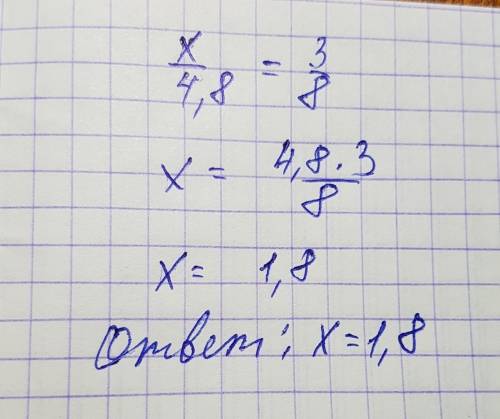 x/4,8 = 3/8
x = 4,8·3/8
x = 1,8
Ответ: x = 1,8